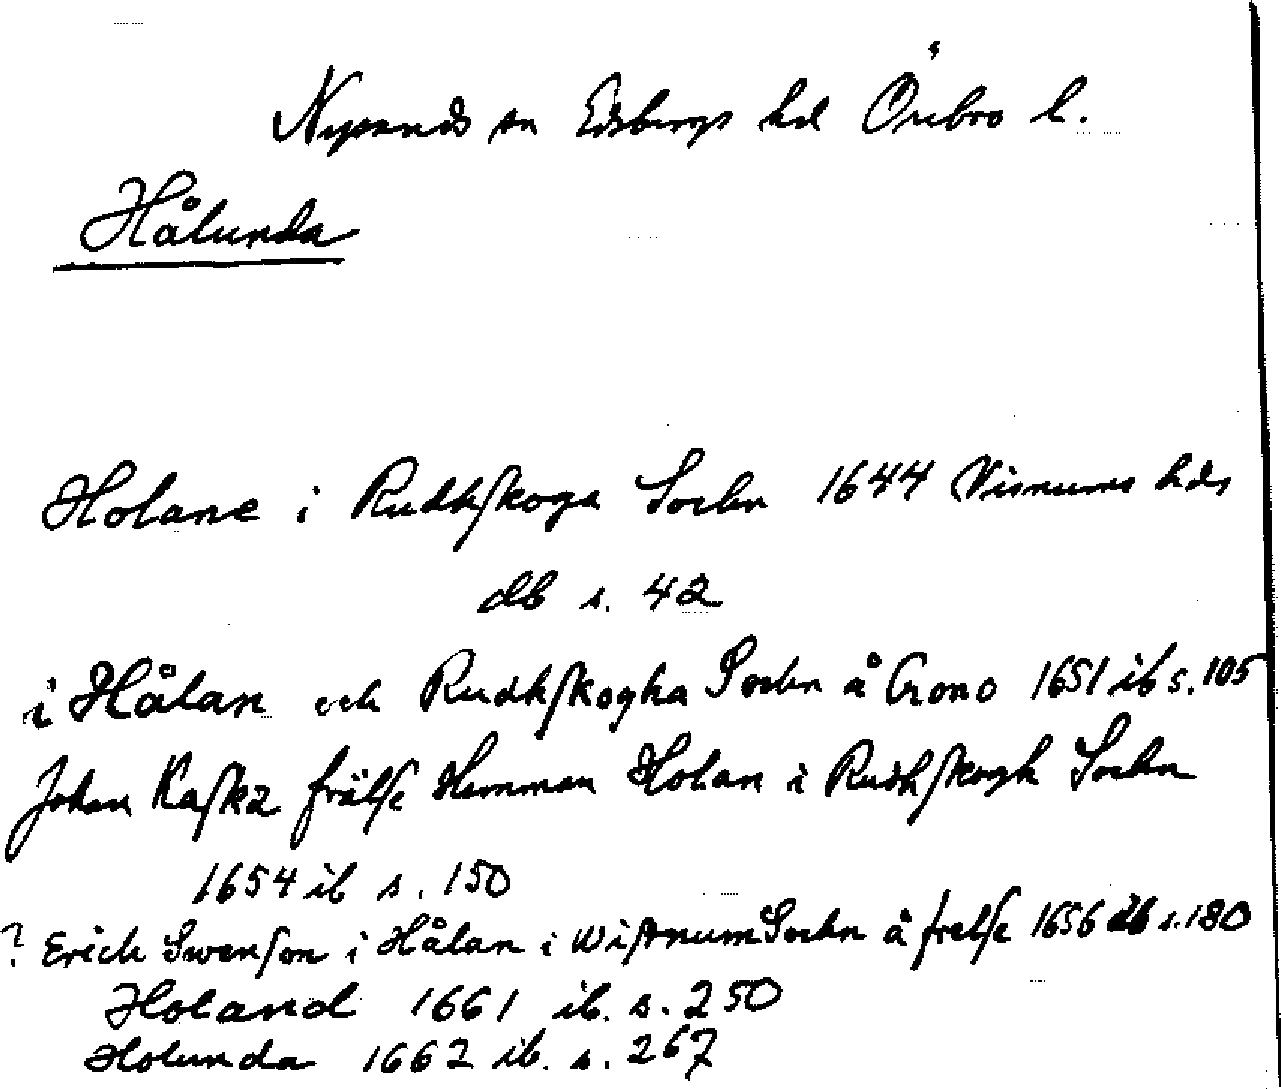 Nysunds sn Edsbergs hd Örebro l.
Hålunda
Holane i Rudhskoga Sochn 1644 Visnums hds
db s. 42
i Hålan och Rudhskogha Sochn å Crono 1651 ib s. 105
Johan Kaska frälse Hemman Holan i Rudhskogh Sochn
1654 ib s. 150
? Erich Swenson i Hålan i Wisnum Sochn å frelse 1656 ib s. 180
Holand 1661 ib. s. 250
Holunda 1662 ib. s. 267